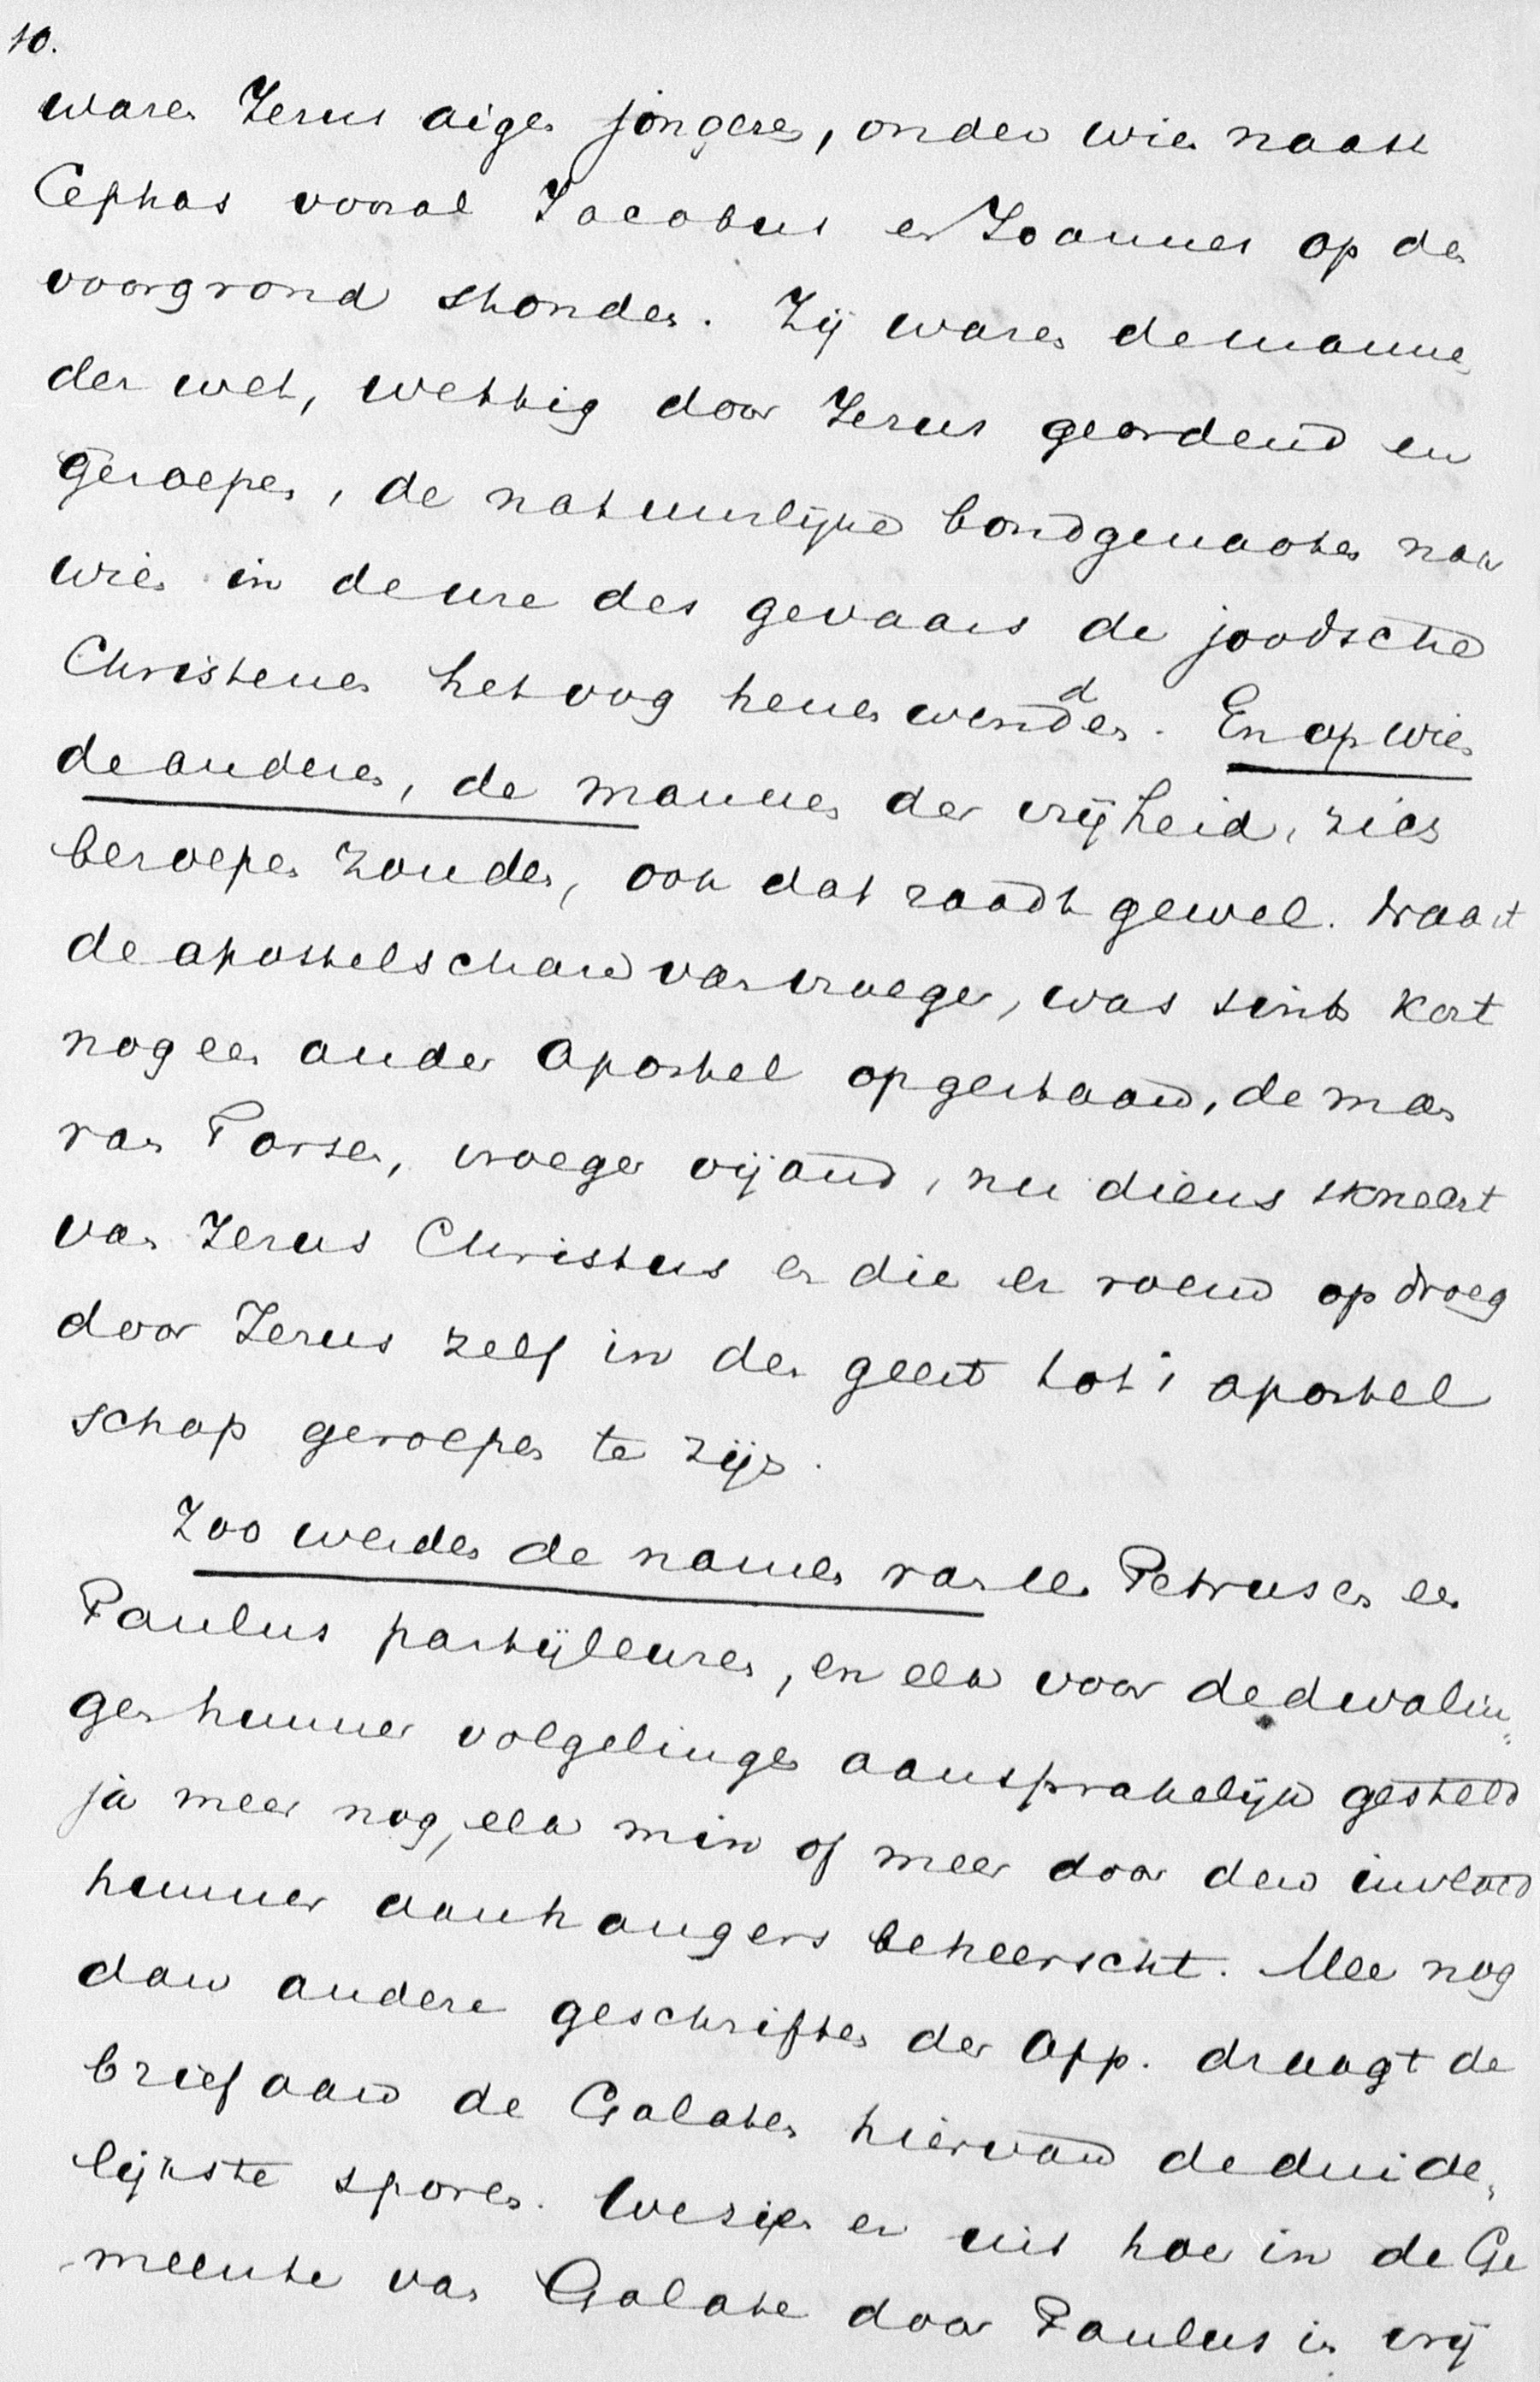 10.
waren Jezus eigen jongeren, onder wien naast
Cephas vooral Jacobus en Joannes op den
voorgrond stonden. Zij waren de mannen
der wet, wettig door Jezus geordend en
geroepen, de natuurlijke bondgenooten naar
wien in de ure des gevaars de joodsche
Christenen het oog henen wendden. En op wien
de anderen, de mannen der vrijheid, zich
beroepen zouden, ook dat raadt ge wel. Naast
de apostelschaar van vroeger, was sints kort
nog een ander Apostel opgestaan, de man
van Tarsen, vroeger vijand, nu dienstknecht
van Jezus Christus en die er roem op droeg
door Jezus zelf in den geest tot 't apostel
schap geroepen te zijn.
Zoo werden de namen van een Petrus en een
Paulus partijleuzen, en elk voor de dwalin
gen hunner volgelingen aansprakelijk gesteld
ja meer nog, elk min of meer door den invloed
hunner aanhangers beheerscht. Meer nog
dan andere geschriften der App. draagt de
brief aan de Galaten hiervan de duide
lijkste sporen. We zien er uit hoe in de Ge
meente van Galate door Paulus in vrij